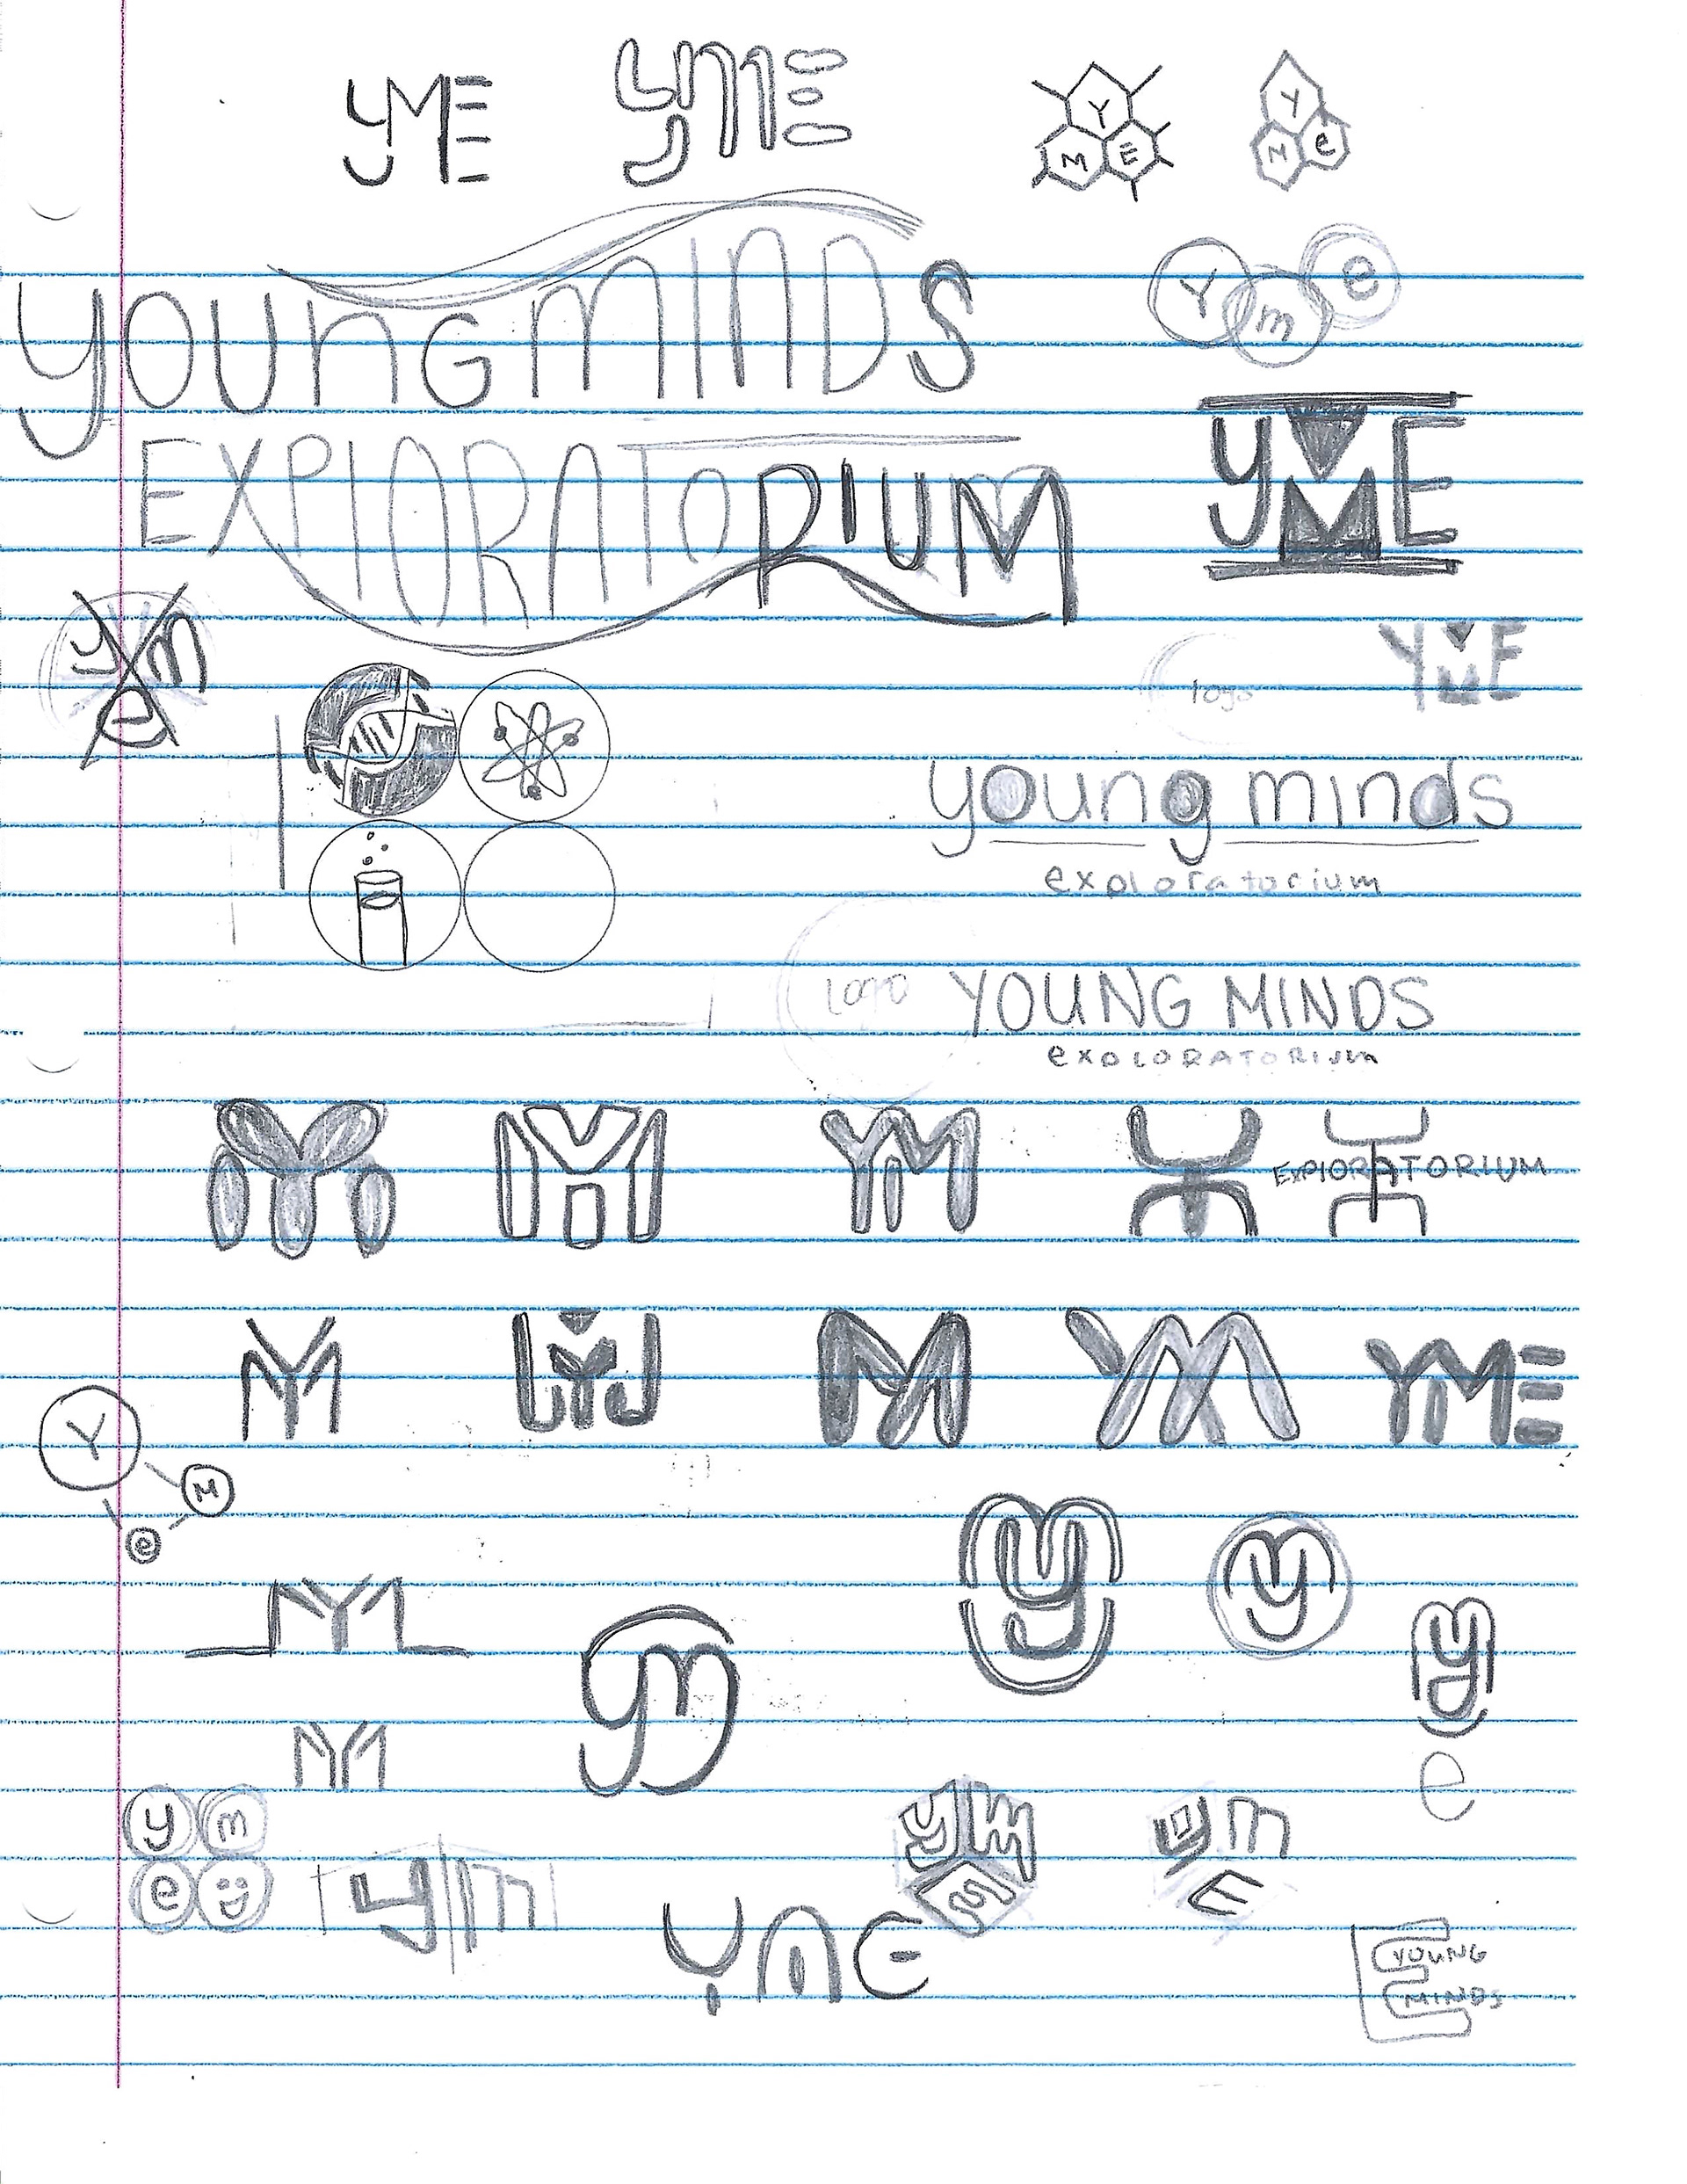 yME
yme
Y
M E
Y
M e
Y m e
young MINDS
EXPLORATORIUM
yME
y m
e
logo
YME
young minds
exploratorium
logo
YOUNG MINDS
exPLORATORIum
YM
YM
YM
Y
EXPLORATORIUM
YM
YM
M
YM
YME
Y
M
e
YM
ym
y
y
y
e
YM
y m
e
ym
yme
ym
E
yme
YOUNG
MINDS